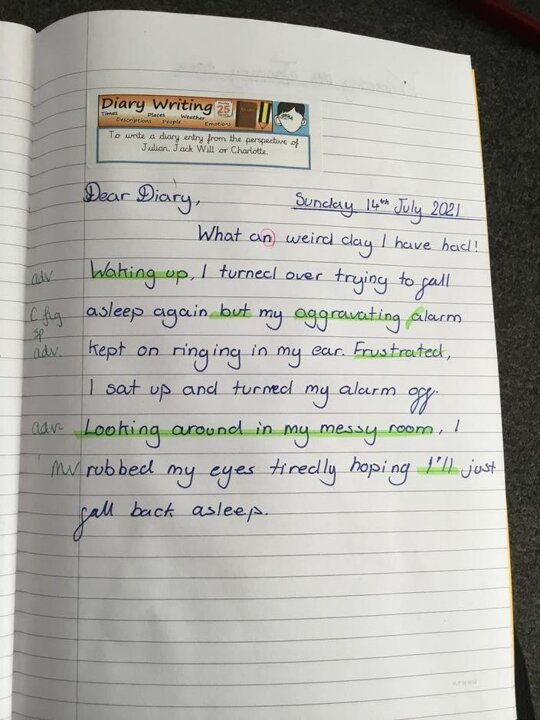 Diary Writing
Times
Places
Weather
Descriptions
People
Emotions
25
To write a diary entry from the perspective of
Julian, Jack Will or Charlotte.
Dear Diary,
Sunday 14th July 2021
What an weird day I have had!
adv Waking up, I turned over trying to fall
C asleep again but my aggravating alarm
sp
adv. kept on ringing in my ear. Frustrated,
I sat up and turned my alarm off.
adv Looking around in my messy room, I
mv rubbed my eyes tiredly hoping I'll just
fall back asleep.